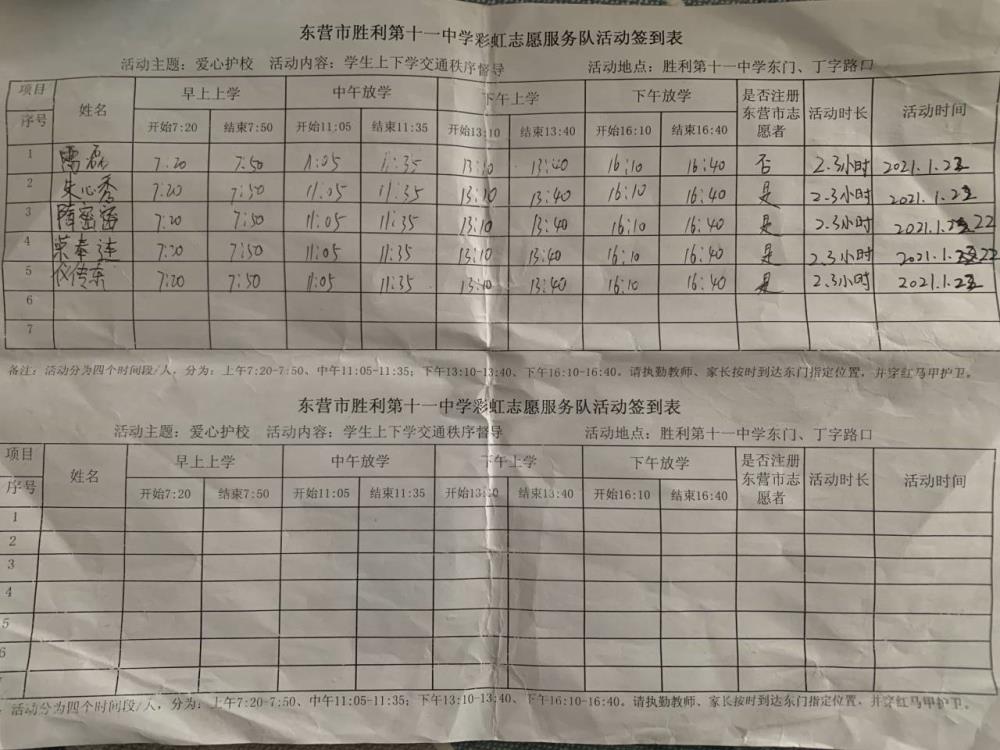 东营市胜利第十一中学彩虹志愿服务队活动签到表
活动主题：爱心护校 活动内容：学生上下学交通秩序督导 活动地点：胜利第十一中学东门、丁字路口
项目 姓名 早上上学 中午放学 下午上学 下午放学 是否注册东营市志愿者 活动时长 活动时间
序号 开始7:20 结束7:50 开始11:05 结束11:35 开始13:10 结束13:40 开始16:10 结束16:40
1 雷磊 7:20 7:50 11:05 11:35 13:10 13:40 16:10 16:40 否 2.3小时 2021.1.22
2 朱心秀 7:20 7:50 11:05 11:35 13:10 13:40 16:10 16:40 是 2.3小时 2021.1.22
3 隋密密 7:20 7:50 11:05 11:35 13:10 13:40 16:10 16:40 是 2.3小时 2021.1.22
4 荣奉连 7:20 7:50 11:05 11:35 13:10 13:40 16:10 16:40 是 2.3小时 2021.1.22
5 仪传东 7:20 7:50 11:05 11:35 13:10 13:40 16:10 16:40 是 2.3小时 2021.1.22
6
7
备注：活动分为四个时间段/人，分为：上午7:20-7:50、中午11:05-11:35；下午13:10-13:40、下午16:10-16:40。请执勤教师、家长按时到达东门指定位置，并穿红马甲护卫。
东营市胜利第十一中学彩虹志愿服务队活动签到表
活动主题：爱心护校 活动内容：学生上下学交通秩序督导 活动地点：胜利第十一中学东门、丁字路口
项目 姓名 早上上学 中午放学 下午上学 下午放学 是否注册东营市志愿者 活动时长 活动时间
序号 开始7:20 结束7:50 开始11:05 结束11:35 开始13:10 结束13:40 开始16:10 结束16:40
1
2
3
4
5
6
活动分为四个时间段/人，分为：上午7:20-7:50、中午11:05-11:35；下午13:10-13:40、下午16:10-16:40。请执勤教师、家长按时到达东门指定位置，并穿红马甲护卫。